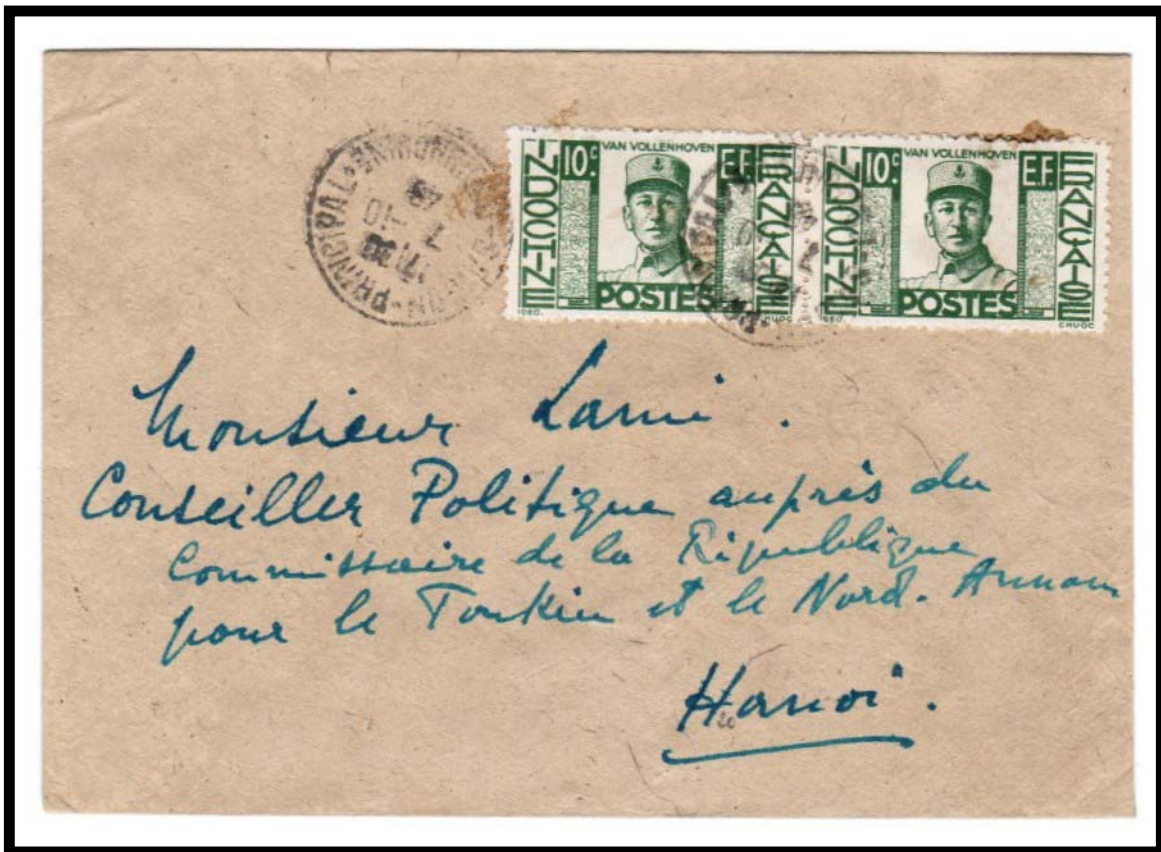 INDOCHINE 10c. VAN VOLLENHOVEN E.F. FRANÇAISE
POSTES
1980. CHUOC
INDOCHINE 10c. VAN VOLLENHOVEN E.F. FRANÇAISE
POSTES
CHUOC
PRINCIPAL
1730
7-10
Monsieur Lami.
Conseiller Politique auprès du
Commissaire de la République
pour le Tonkin et le Nord-Annam
Hanoi.